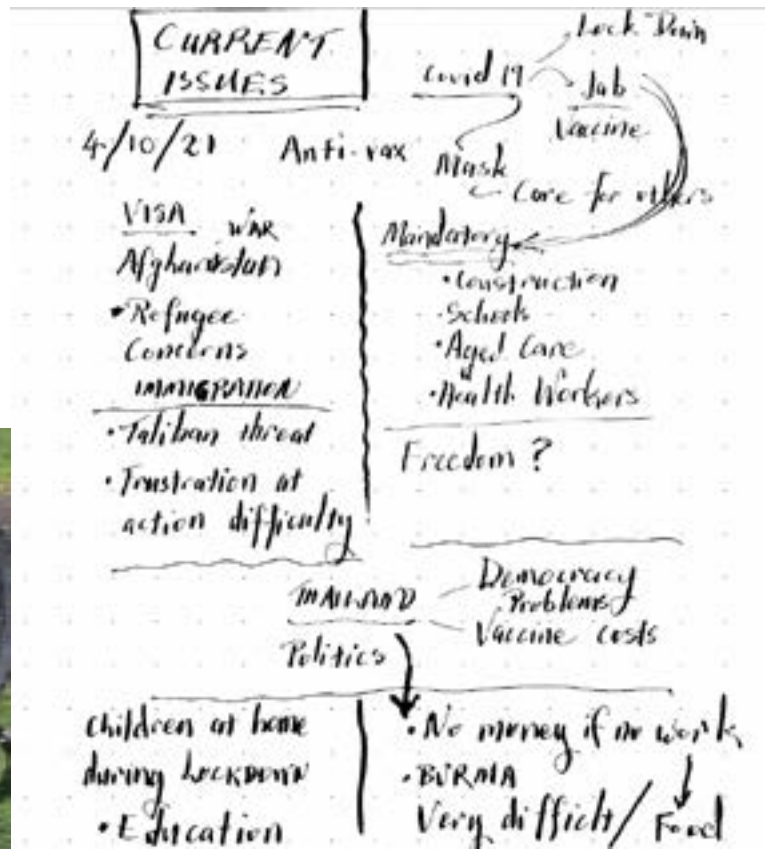 CURRENT
ISSUES
4/10/21
Anti-vax
Covid 19
Lock Down
Jab
Vaccine
Mask
Care for others
VISA WAR
Afghanistan
• Refugee
Concerns
IMMIGRATION
• Taliban threat
• Frustration at
action difficulty
Mandatory
• Construction
• Schools
• Aged Care
• Health Workers
Freedom ?
THAILAND
Politics
Democracy
Problems
Vaccine costs
Children at home
during LOCKDOWN
• Education
• No money if no work
• BURMA
Very difficult / Food